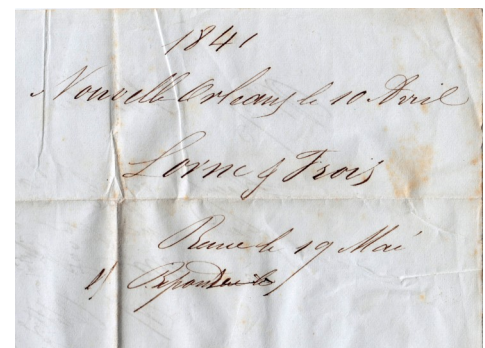 1841
Nouvelle Orleans le 10 Avril
Lorm & Frois
Recue le 19 Mai
Repondue le